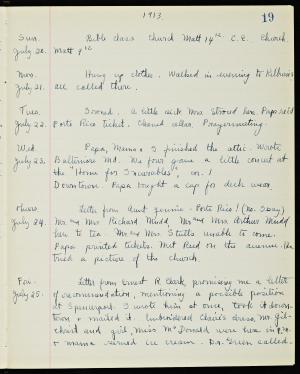 1913.
19
Sun. Bible class Church Matt 14 12 C.E. Church.
July 20. Matt 9
Mon. Hung up clothes. Walked in evening to
July 21. all called there.
Tues. Ironed. A little sick Mrs. here. Papa paid
July 22. Porto Rico ticket. Cleaned cellar. Prayermeeting
Wed. Papa, Mama & I finished the attic. Wrote
July 23. Baltimore Md. We four gave a little concert at
the "Home for Incurables", on.
Downtown. Papa bought a cap for deck wear.
Thurs. Letter from Aunt Jennie - Porto Rico! (no. 3 day)
July 24. Mr and Mrs Richard Mudd, Mr and Mrs Arthur Mudd
here to tea. Mr and Mrs Stutts unable to come.
Papa printed tickets. Met Reed on the avenue.
tried a picture of the church.
Fri. Letter from Ernest R. Clark, promising me a letter
July 25. of recommendation, mentioning a possible position
at. I wrote him at once, took it down
town & mailed it. Embroidered Claire's dress. Mr. Gil-
christ and girl, Miss McDonald were here in
& mama served ice cream. Dr. Green called.